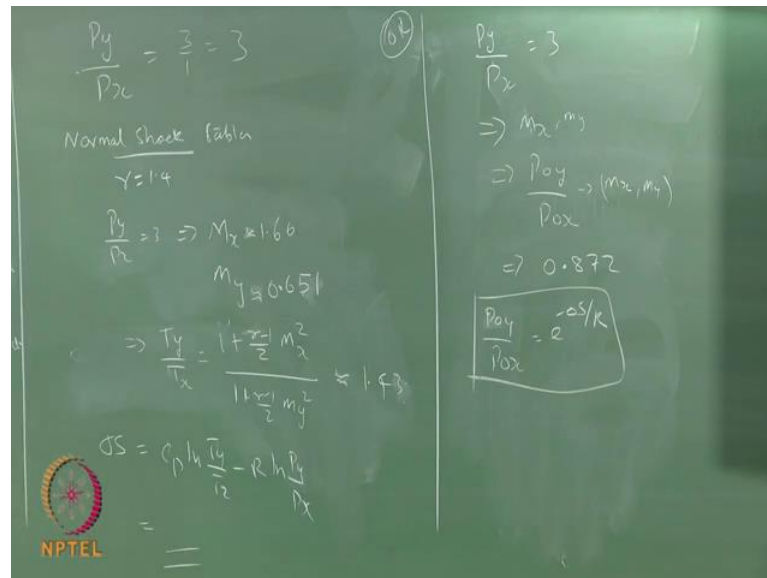 Py/Px = 3/1 = 3
Normal Shock Tables
γ=1.4
Py/Px = 3 ⇒ Mx ≈ 1.60
My ≈ 0.651
⇒ Ty/Tx = (1+(γ-1)/2 Mx²)/(1+(γ-1)/2 My²) ≈ 1.43
σs = Cp ln Ty/Tx - R ln Py/Px
=
OR
Py/Px = 3
⇒ Mx, My
⇒ Poy/Pox → (Mx, My)
⇒ 0.872
Poy/Pox = e^-σs/R
NPTEL